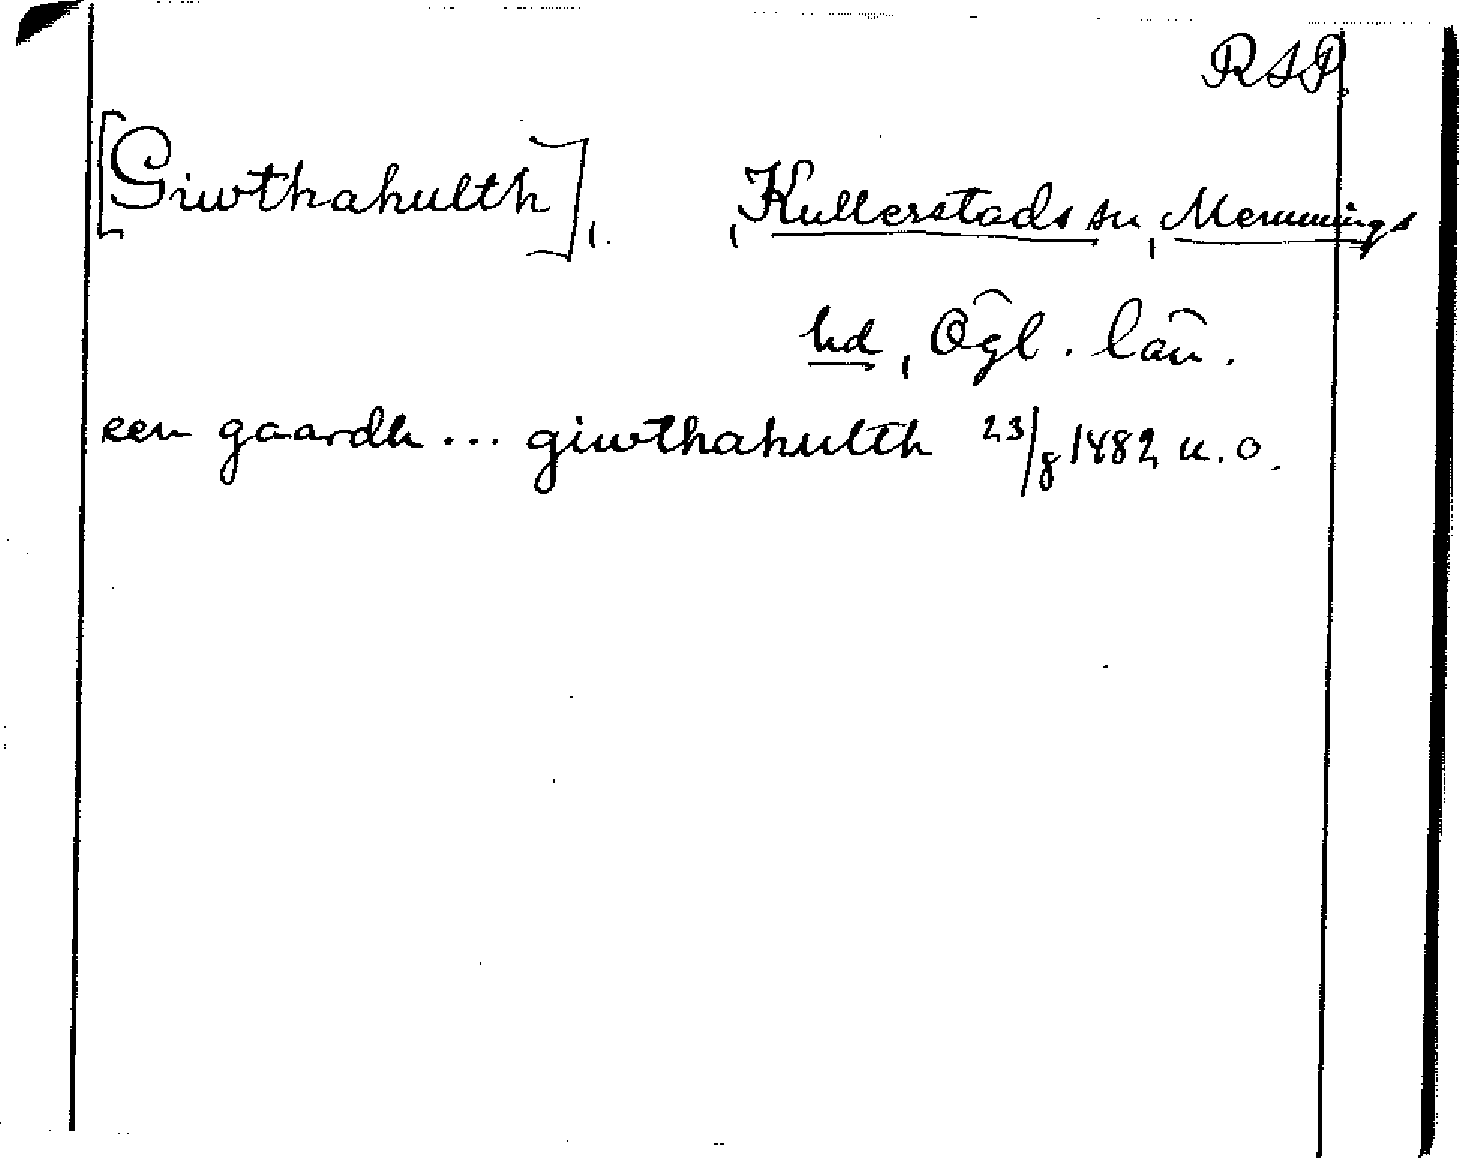 RAP.
[Giwthahulth], Kullerstads sn, Memmings
hd, Ögl. län.
een gaardh ... giwthahulth 23/8 1482 u.o.